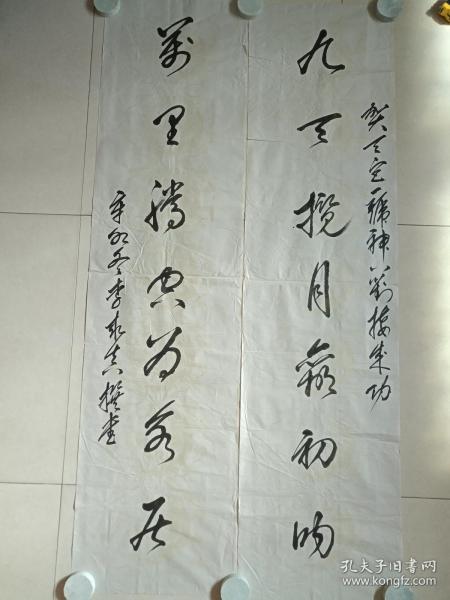 贺天宫一号神八对接成功
九天揽月
初吻
万里腾空为客居
辛卯冬李
撰书
孔夫子旧书网
www.kongfz.com